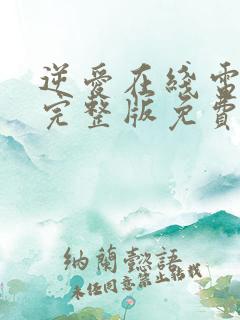 逆愛在綫雷
完整版免費
納蘭懿語
未經同意禁止轉載